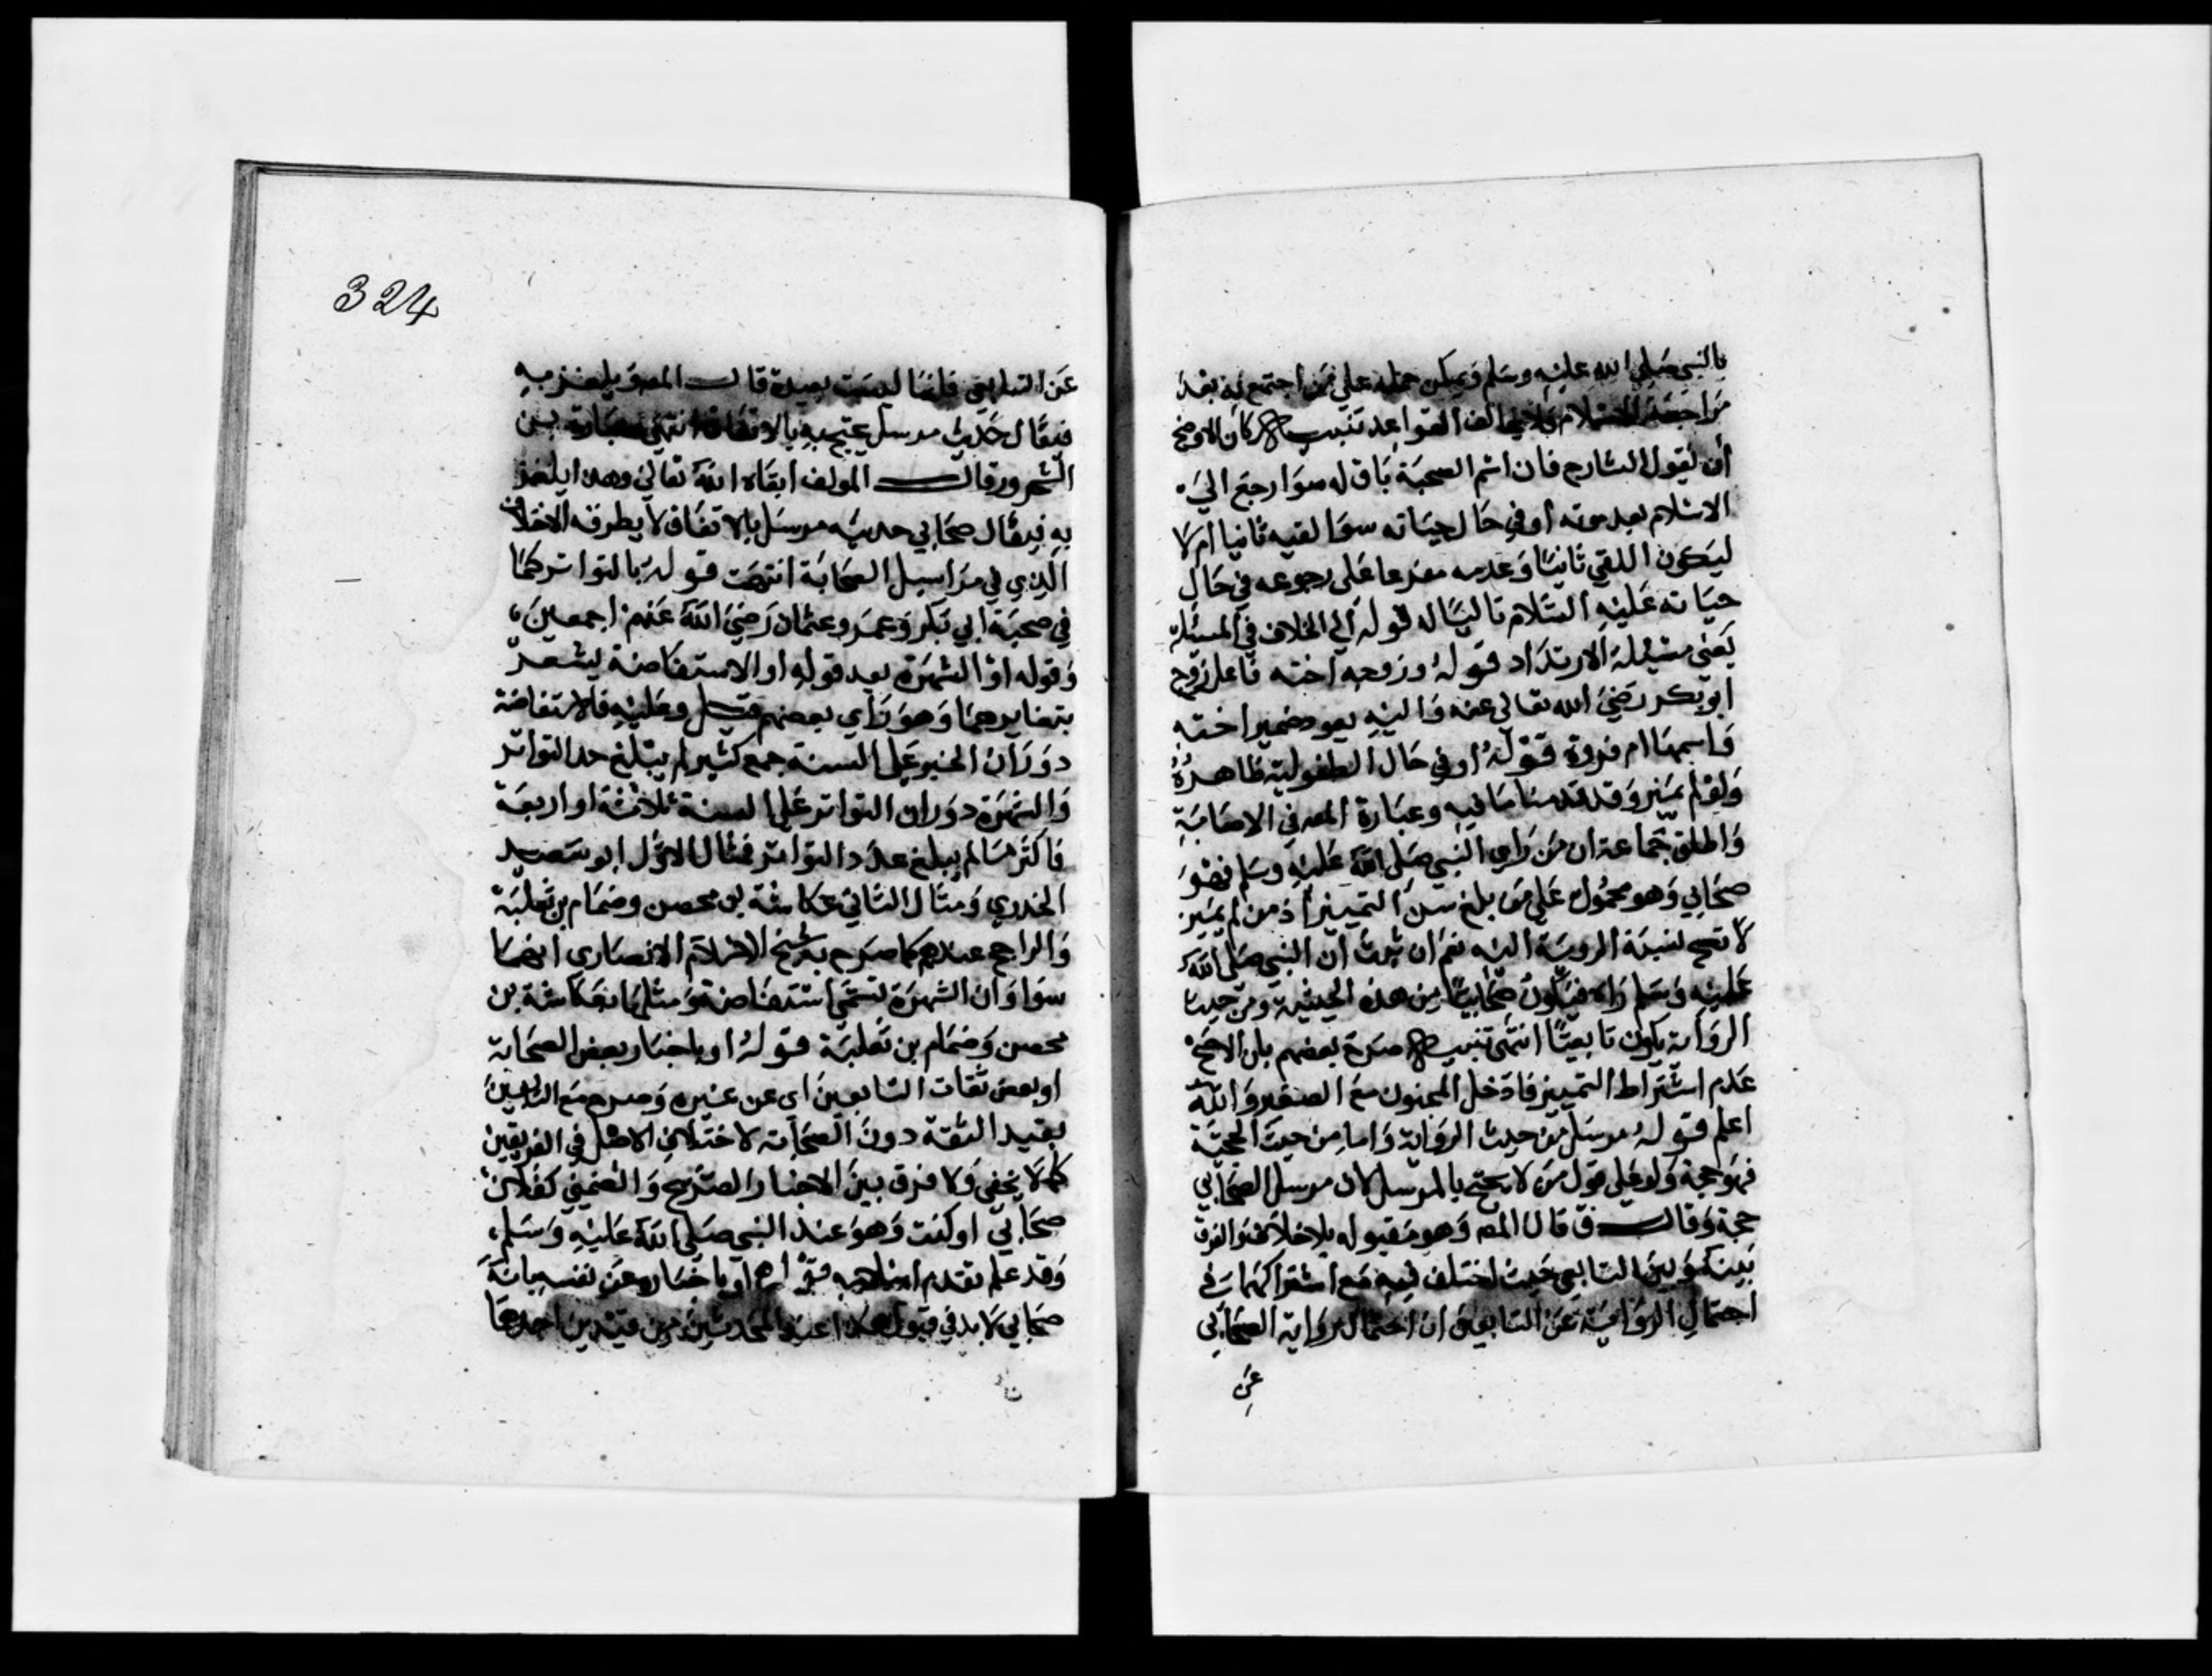 بالنبي صلى الله عليه وسلم ويمكن حمله على من اجتمع به بعد
مراجعة الاسلام فلا يخالف القواعد تنبيه كان الاوضح
أن يقول الشارح فان اسم الصحبة باق له سوا رجع الى
الاسلام بعد موته أو في حال حياته سوا لقيه ثانيا ام لا
ليكون اللقي ثانيا وعدمه مفرعا على رجوعه في حال
حياته عليه السلام تاليا له قوله الى الخلاف في المسئلة
يعني مسئلة الارتداد قوله وزوجه اخته فاعل زوج
ابو بكر رضي الله تعالى عنه واليه يعود ضمير اخته
واسمها ام فروة قوله او في حال الطفولية ظاهره
ولو لم يميز وقد قدمنا ما فيه وعبارة المص في الاصابة
واطلق جماعة ان من رأى النبي صلى الله عليه وسلم فهو
صحابي وهو محمول على من بلغ سن التمييز اذ من لم يميز
لا تصح نسبة الروية اليه نعم ان ثبت ان النبي صلى الله
عليه وسلم راه فيكون صحابيا من هذه الحيثية ومن حيث
الرواية يكون تابعيا انتهى تنبيه صرح بعضهم بان الاصح
عدم اشتراط التمييز فادخل المجنون مع الصغير والله
اعلم قوله مرسل من حيث الرواية واما من حيث الحجية
فهو حجة ولو على قول من لا يحتج بالمرسل لان مرسل الصحابي
حجة وقال ق قال المص وهو مقبول بلا خلاف والفرق
بينه وبين التابعي حيث اختلف فيه مع اشتراكهما في
احتمال الرواية عن التابعي ان احتمال رواية الصحابي
عن
324
عن التابعي فانها ليست بعيدة قال المص ويلغز به
فيقال حديث مرسل يحتج به بالاتفاق انتهى عبارة
وقال المولف ابقاه الله تعالى وهذا يلغز
به فيقال صحابي حديثه مرسل بالاتفاق لا يطرقه الاختلاف
الذي في مراسيل الصحابة انتهت قوله بالتواتر كما
في صحبة ابي بكر وعمر وعثمان رضي الله عنهم اجمعين،
وقوله او الشهرة بعد قوله او الاستفاضة يشعر
بتغايرهما وهو رأي بعضهم وعليه فالاستفاضة
دوران الخبر على السنة جمع كثير لم يبلغ حد التواتر
والشهرة دوران التواتر على السنة ثلاثة او اربعة
فاكثر مما لم يبلغ عدد التواتر فمثال الاول ابو سعيد
الخدري ومثال الثاني عكاشة بن محصن وضمام بن ثعلبة
والراجح عندهم كما صرح به شيخ الاسلام الانصاري انهما
سوا وان الشهرة تسمى استفاضة ومثلها بعكاشة بن
محصن وضمام بن ثعلبة قوله او باخبار بعض الصحابة
او بعض ثقات التابعين اى عن غيره وصرح مع التابعين
بقيد الثقة دون الصحابة لاختلاف الاصل في الفريقين
كما لا يخفى ولا فرق بين الاخبار الصريح والضمني كفلان
صحابي او كنت وهو عند النبي صلى الله عليه وسلم،
وقد علم تقدم اسلامه قوله او باخباره عن نفسه بانه
صحابي لا بد في قبول هذا عند المحدثين من قيدين احدهما